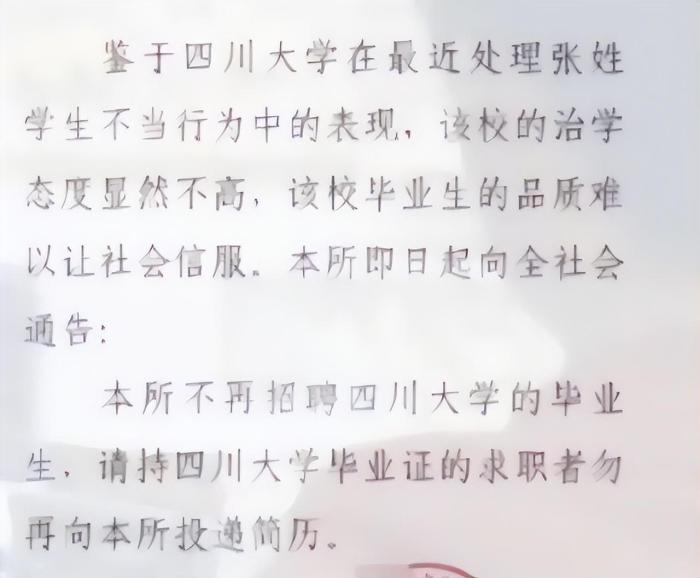 鉴于四川大学在最近处理张姓
学生不当行为中的表现，该校的治学
态度显然不高，该校毕业生的品质难
以让社会信服。本所即日起向全社会
通告：
本所不再招聘四川大学的毕业
生，请持四川大学毕业证的求职者勿
再向本所投递简历。